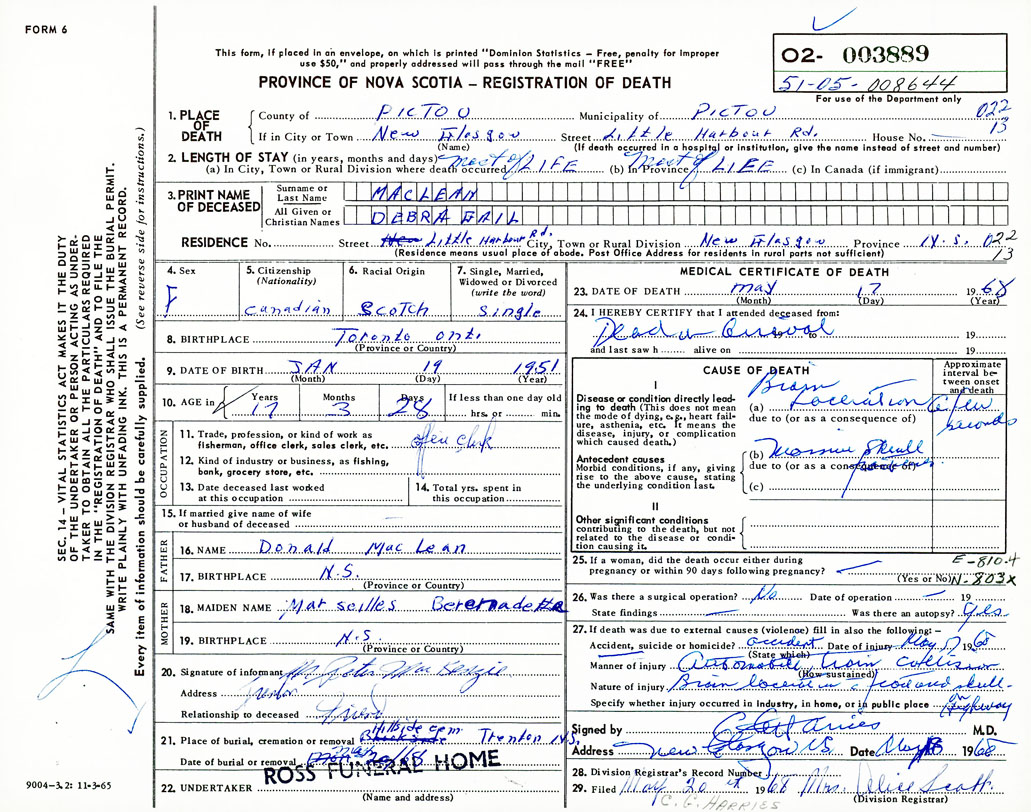 FORM 6
This form, if placed in an envelope, on which is printed "Dominion Statistics – Free, penalty for improper
use $50," and properly addressed will pass through the mail "FREE"
PROVINCE OF NOVA SCOTIA – REGISTRATION OF DEATH
02- 003889
51-05-008644
For use of the Department only
022
13
1. PLACE OF DEATH
County of PICTOU Municipality of PICTOU
If in City or Town New Glasgow Street Little Harbour Rd. House No.
(Name) (If death occurred in a hospital or institution, give the name instead of street and number)
2. LENGTH OF STAY (in years, months and days)
(a) In City, Town or Rural Division where death occurred most of LIFE (b) In Province Most of LIFE (c) In Canada (if immigrant)
3. PRINT NAME OF DECEASED
Surname or Last Name MACLEAN
All Given or Christian Names DEBRA GAIL
RESIDENCE No. Street Little Harbour Rd. City, Town or Rural Division New Glasgow Province N.S. 022
13
(Residence means usual place of abode. Post Office Address for residents in rural parts not sufficient)
4. Sex F
5. Citizenship (Nationality) Canadian
6. Racial Origin Scotch
7. Single, Married, Widowed or Divorced (write the word) Single
8. BIRTHPLACE Toronto Ont.
(Province or Country)
9. DATE OF BIRTH JAN 19 1951
(Month) (Day) (Year)
10. AGE in Years 17 Months 3 Days 28 If less than one day old hrs. or min.
OCCUPATION
11. Trade, profession, or kind of work as fisherman, office clerk, sales clerk, etc. Clerk
12. Kind of industry or business, as fishing, bank, grocery store, etc.
13. Date deceased last worked at this occupation
14. Total yrs. spent in this occupation
15. If married give name of wife or husband of deceased
FATHER
16. NAME Donald MacLean
17. BIRTHPLACE N.S.
(Province or Country)
MOTHER
18. MAIDEN NAME Marseilles Berenadette
19. BIRTHPLACE N.S.
(Province or Country)
20. Signature of informant Mr. Peter MacKenzie
Address Trenton
Relationship to deceased Friend
21. Place of burial, cremation or removal Hillside cem Trenton N.S.
Date of burial or removal
ROSS FUNERAL HOME
22. UNDERTAKER
(Name and address)
MEDICAL CERTIFICATE OF DEATH
23. DATE OF DEATH May 17 1968
(Month) (Day) (Year)
24. I HEREBY CERTIFY that I attended deceased from:
Dead on Arrival 19
and last saw h alive on 19
CAUSE OF DEATH
Approximate interval between onset and death
I
Disease or condition directly leading to death (This does not mean the mode of dying, e.g., heart failure, asthenia, etc. It means the disease, injury, or complication which caused death.)
(a) Brain Laceration a few seconds
due to (or as a consequence of)
Antecedent causes
Morbid conditions, if any, giving rise to the above cause, stating the underlying condition last.
(b) Massive Skull
due to (or as a consequence of)
(c)
II
Other significant conditions
contributing to the death, but not related to the disease or condition causing it.
25. If a woman, did the death occur either during pregnancy or within 90 days following pregnancy?
(Yes or No)
E-810.4
N-803X
26. Was there a surgical operation? No Date of operation 19
State findings Was there an autopsy? yes
27. If death was due to external causes (violence) fill in also the following:–
Accident, suicide or homicide? accident Date of injury May 17 1968
(State which)
Manner of injury Automobile train collision
(How sustained)
Nature of injury Brain
Specify whether injury occurred in industry, in home, or in public place on Highway
Signed by M.D.
Address New Glasgow NS Date May 1968
28. Division Registrar's Record Number
29. Filed May 20th 1968 Mrs. Alice Scott
(Division Registrar)
C. G. HARRIES
SEC. 14 – VITAL STATISTICS ACT MAKES IT THE DUTY
OF THE UNDERTAKER OR PERSON ACTING AS UNDER-
TAKER TO OBTAIN ALL THE PARTICULARS REQUIRED
IN THE "REGISTRATION OF DEATH" AND TO FILE THE
SAME WITH THE DIVISION REGISTRAR WHO SHALL ISSUE THE BURIAL PERMIT.
WRITE PLAINLY WITH UNFADING INK. THIS IS A PERMANENT RECORD.
Every item of information should be carefully supplied. (See reverse side for instructions.)
9004–3.2: 11-3-65